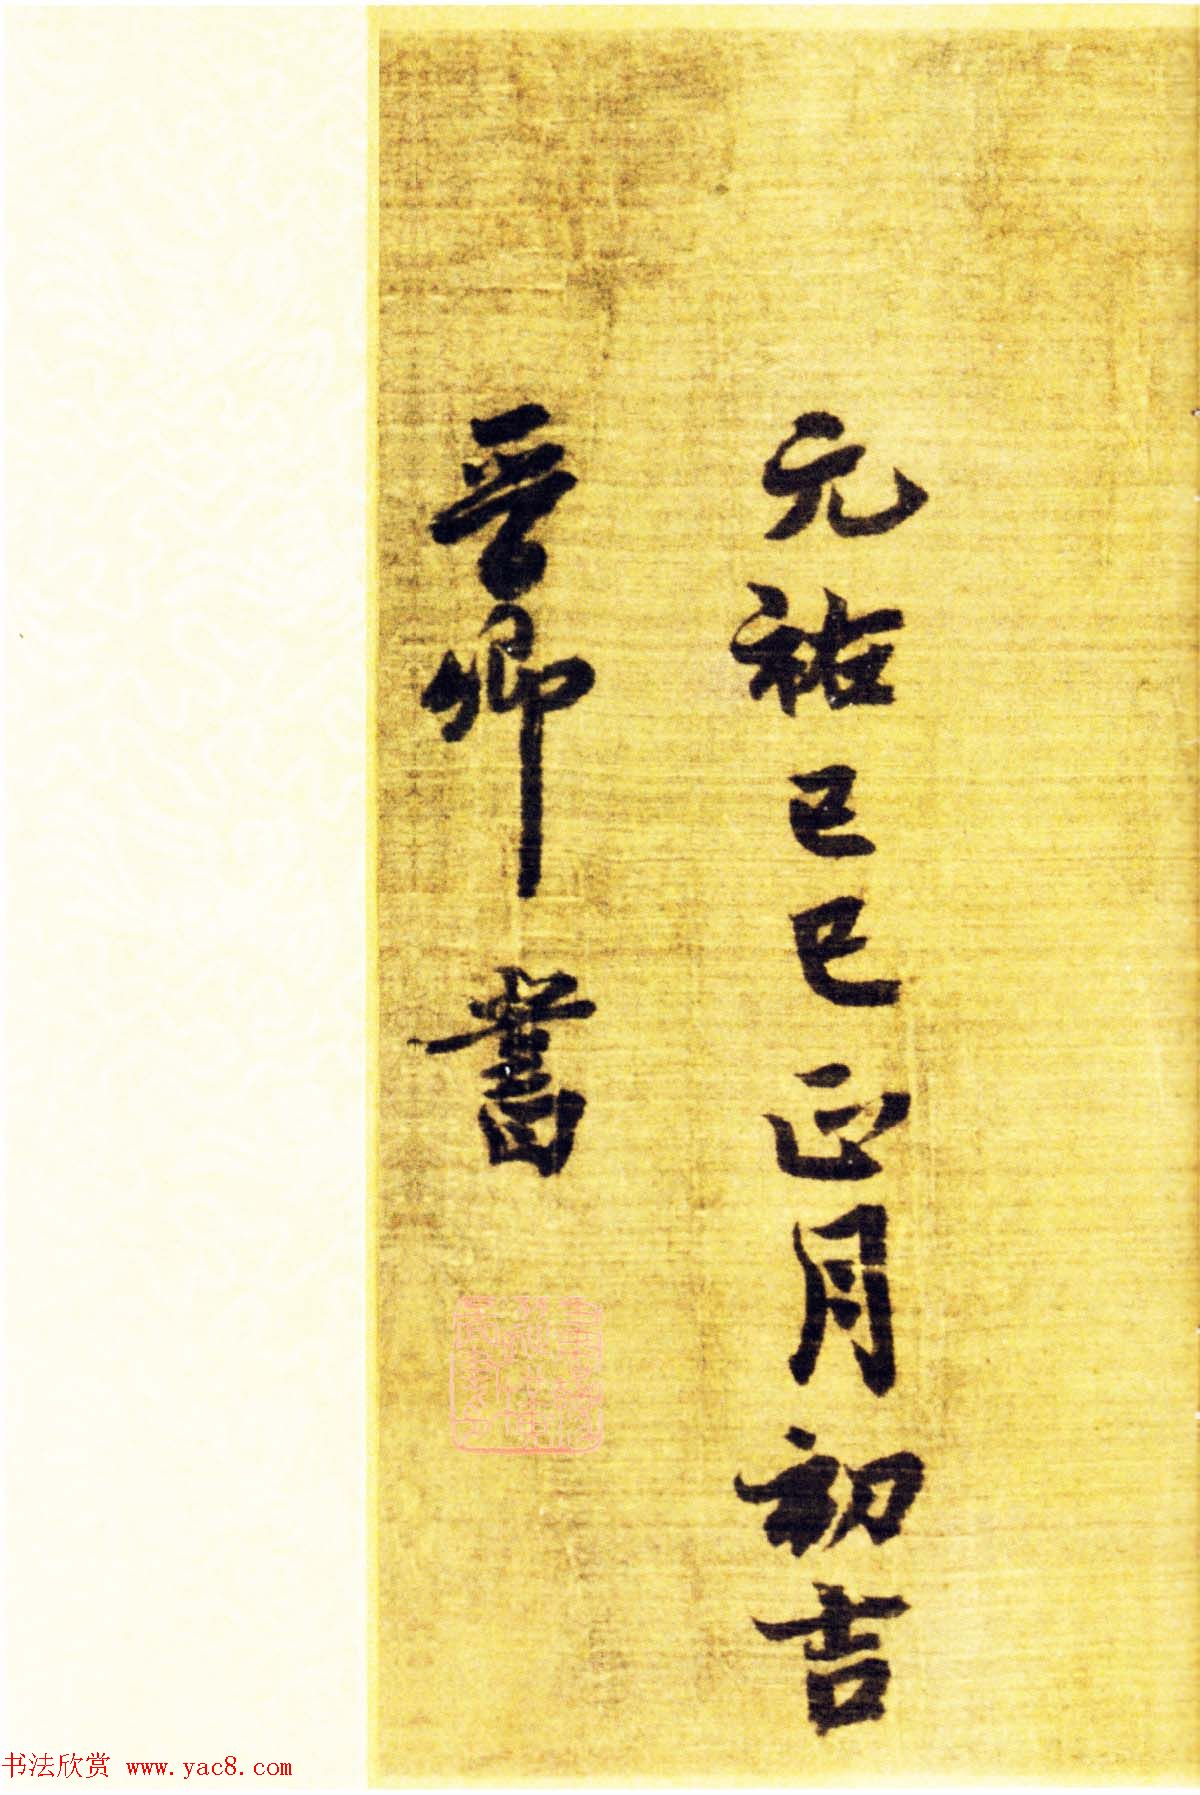 元祐己巳正月初吉
晉卿書
书法欣赏 www.yac8.com